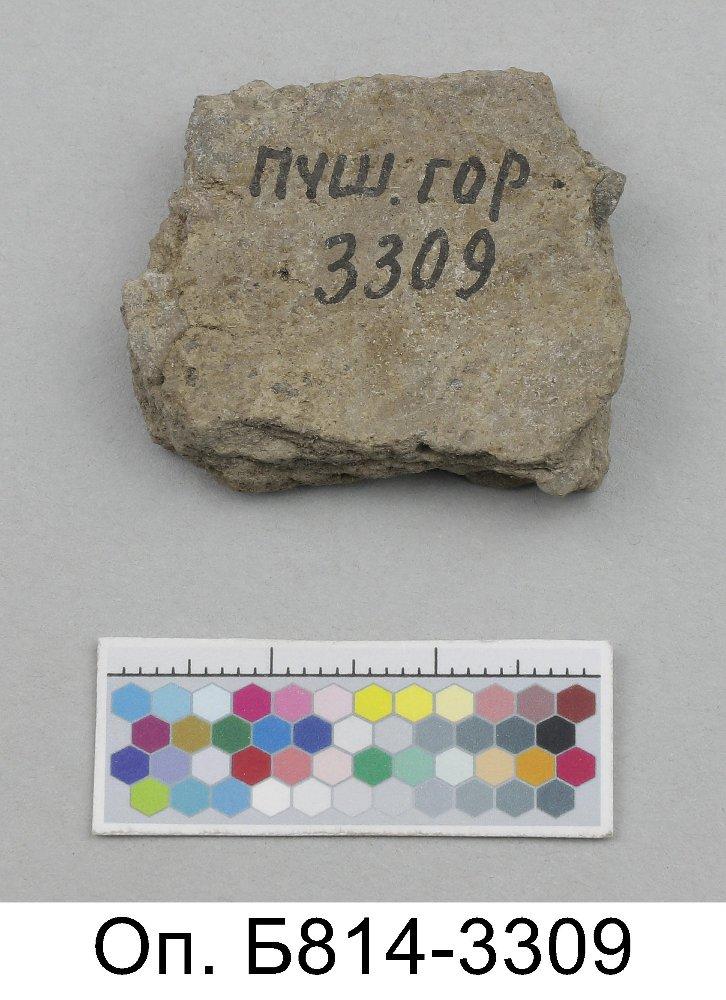 пуш. гор.
3309
Оп. Б814-3309